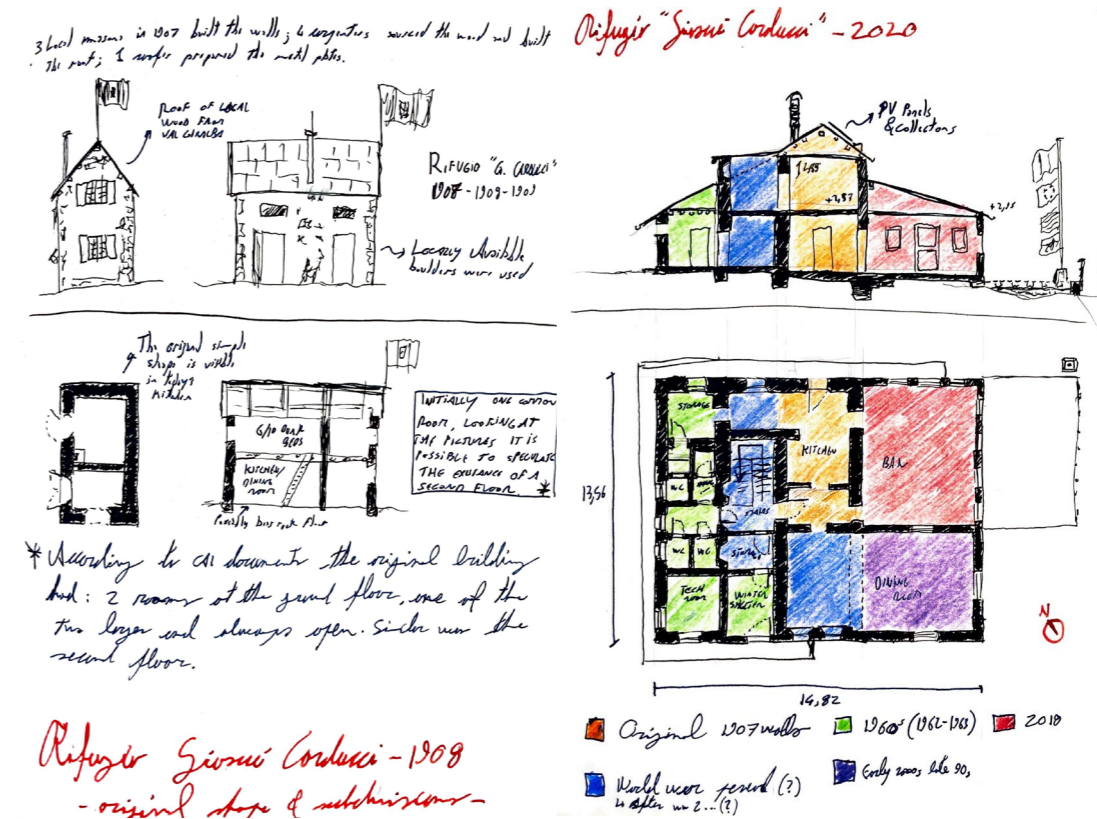 3 local masons in 1907 built the walls; 4 carpenters sourced the wood and built
the roof; 1 roofer prepared the metal plates.
ROOF OF LOCAL
WOOD FROM
RIFUGIO "G. CARDUCCI"
1907 - 1908 - 1909
Locally available
boulders were used
The original simple
shape is visible
in today's
kitchen
6/10 bunk
BEDS
KITCHEN/
DINING
ROOM
Possibly bare rock floor
INITIALLY ONE COMMON
ROOM, LOOKING AT
THE PICTURES IT IS
POSSIBLE TO SPECULATE
THE EXISTANCE OF A
SECOND FLOOR *
* According to CAI documents the original building
had: 2 rooms at the ground floor, one of the
two larger and always open. Similar was the
second floor.
Rifugio Giosuè Carducci - 1908
- original shape & subdivisions -
Rifugio "Giosuè Carducci" - 2020
PV Panels
& collectors
+2,87
STORAGE
KITCHEN
BAR
WC
STAIRS
WC WC
STORAGE
TECH
ROOM
WINTER
SHELTER
DINING
ROOM
13,56
N
14,82
Original 1907 walls
1960s (1962-1963)
2018
World war period (?)
↳ After ww 2... (?)
Early 2000s late 90s